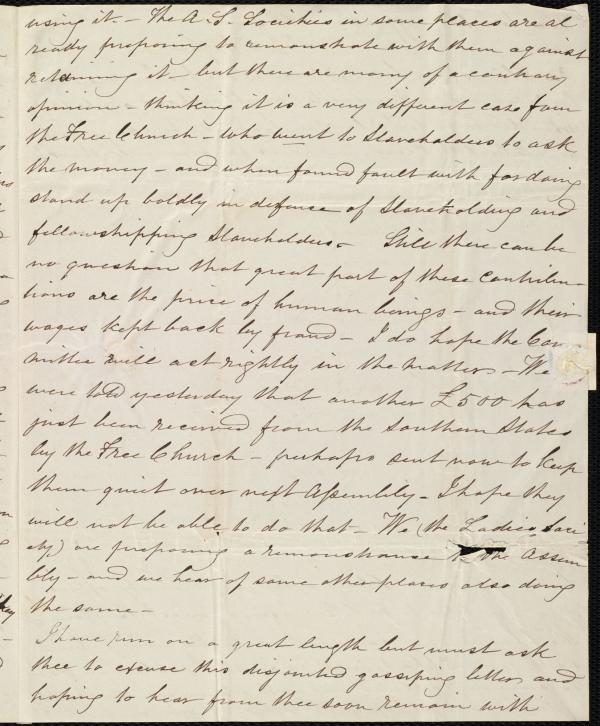 using it. – The A. S. Societies in some places are al
ready preparing to remonstrate with them against
retaining it – but there are many of a contrary
opinion – thinking it is a very different case from
the Free Church – who went to Slaveholders to ask
the money – and when found fault with for doing
stand up boldly in defense of Slaveholding and
fellowshipping Slaveholders – Still there can be
no question that great part of these contribu-
tions are the price of human beings – and their
wages kept back by fraud – I do hope the Com
mittee will act rightly in the matter – We
were told yesterday that another £500 has
just been received from the Southern States
by the Free Church – perhaps sent now to keep
them quiet over next Assembly – I hope they
will not be able to do that – We (the Ladies Soci
ety) are preparing a remonstrance to the Assem
bly – and we hear of some other places also doing
the same –
I have run on a great length but must ask
thee to excuse this disjointed gossiping letter and
hoping to hear from thee soon remain with